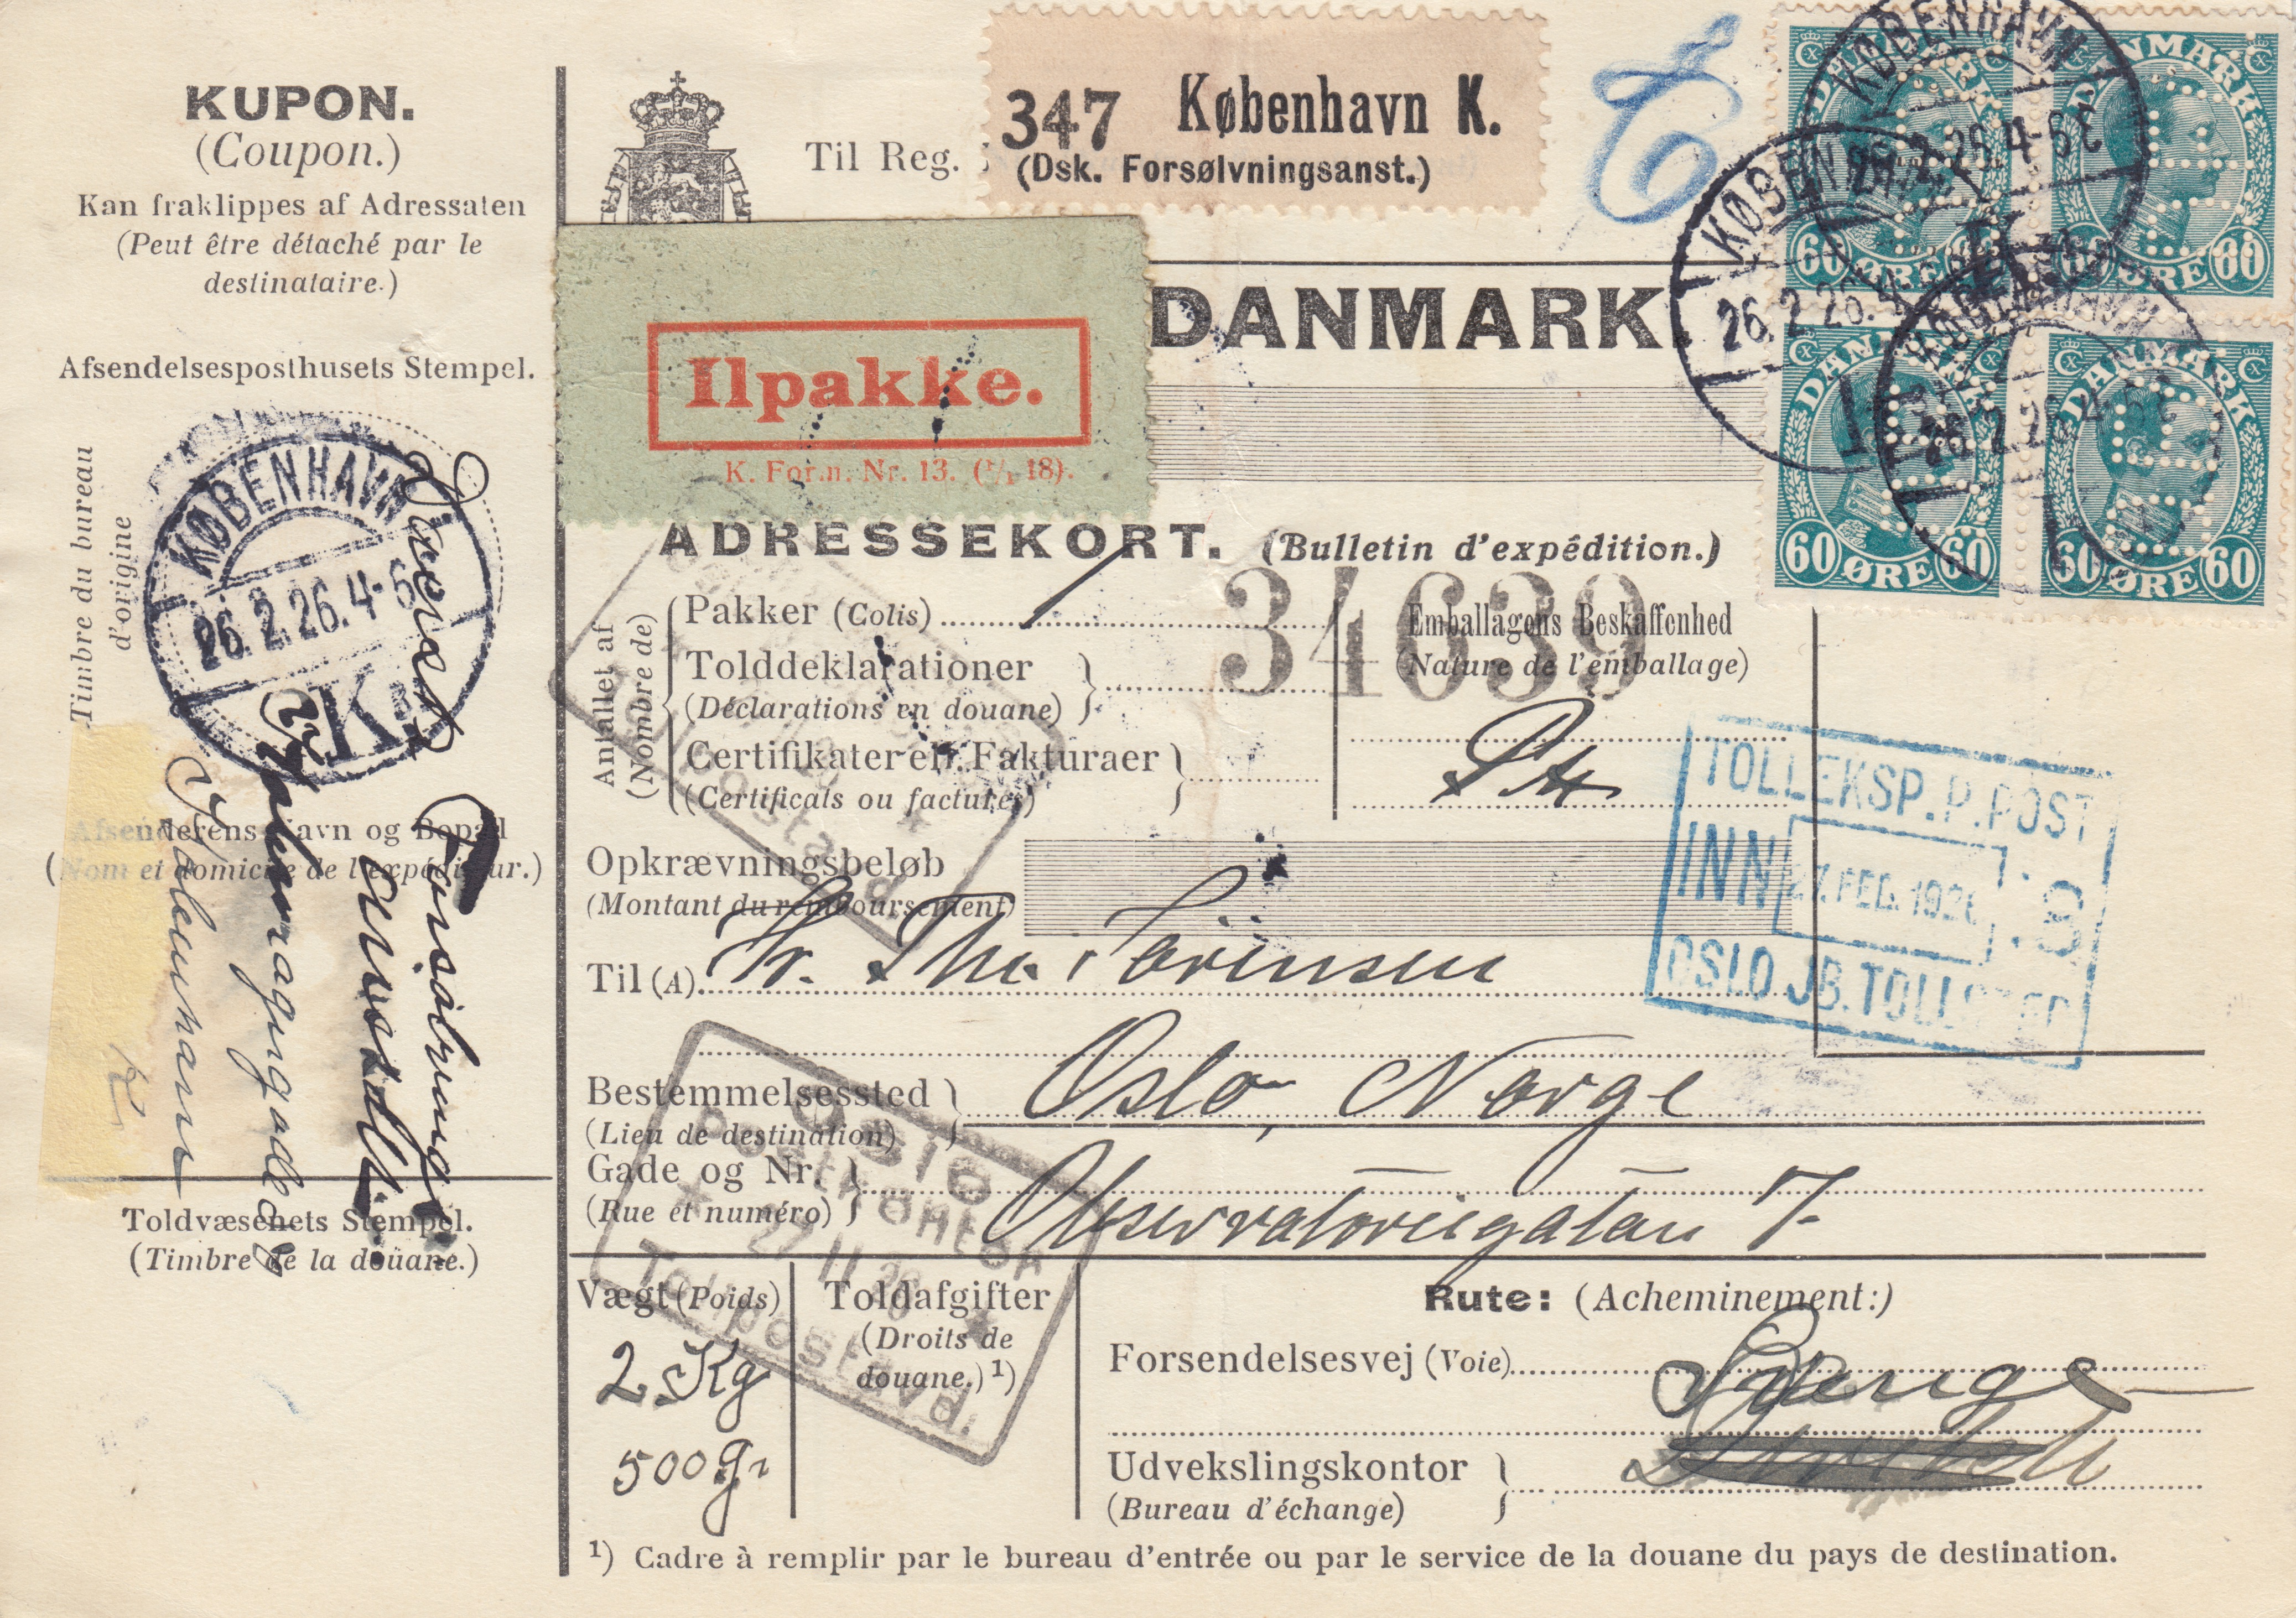 KUPON.
(Coupon.)
Kan fraklippes af Adressaten
(Peut être détaché par le
destinataire.)
Afsendelsesposthusets Stempel.
Timbre du bureau
d'origine
KØBENHAVN
26.2.26.4-6
K.
Afsenderens Navn og Bopæl
(Nom et domicile de l'expéditeur.)
Toldvæsenets Stempel.
(Timbre de la douane.)
Til Reg.
347 København K.
(Dsk. Forsølvningsanst.)
Ilpakke.
K. Form. Nr. 13. (1/1 18).
DANMARK.
DANMARK
60 ØRE 60
DANMARK
60 ØRE 60
DANMARK
60 ØRE 60
DANMARK
60 ØRE 60
KØBENHAVN
26.2.26.4-6E
KØBENHAVN
26.2.26.
ADRESSEKORT. (Bulletin d'expédition.)
34639
Antallet af
(Nombre de)
Pakker (Colis)
Tolddeklarationer
(Déclarations en douane)
Certifikater ell. Fakturaer
(Certificats ou factures)
Emballagens Beskaffenhed
(Nature de l'emballage)
TOLLEKSP. P. POST
INN 27. FEB. 1926
OSLO JB. TOLLSTED
Opkrævningsbeløb
(Montant du remboursement)
Til (A). Hr. Th. Sörensen
Bestemmelsessted
(Lieu de destination)
Oslo, Norge
Gade og Nr.
(Rue et numéro)
Observatoriegatan 7
Oslo
Postkontor
27 II 26
Tollpostavd.
Vægt (Poids)
2 Kg
500 gr
Toldafgifter
(Droits de
douane.) 1)
Rute: (Acheminement:)
Forsendelsesvej (Voie) Sverige
Udvekslingskontor
(Bureau d'échange)
1) Cadre à remplir par le bureau d'entrée ou par le service de la douane du pays de destination.